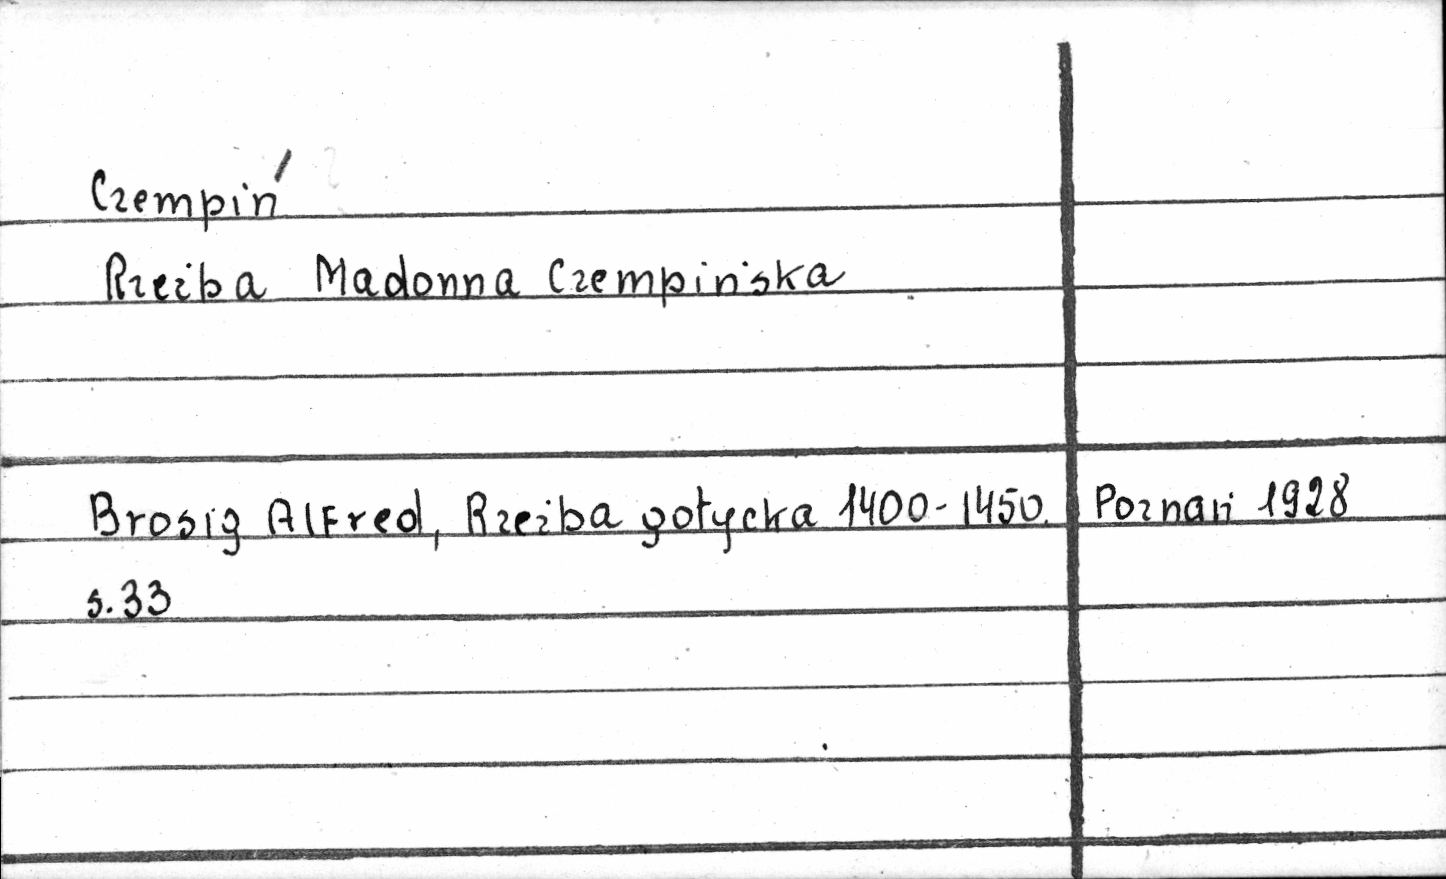 Czempiń
Rzeźba Madonna Czempińska
Brosig Alfred, Rzeźba gotycka 1400-1450. Poznań 1928
s. 33